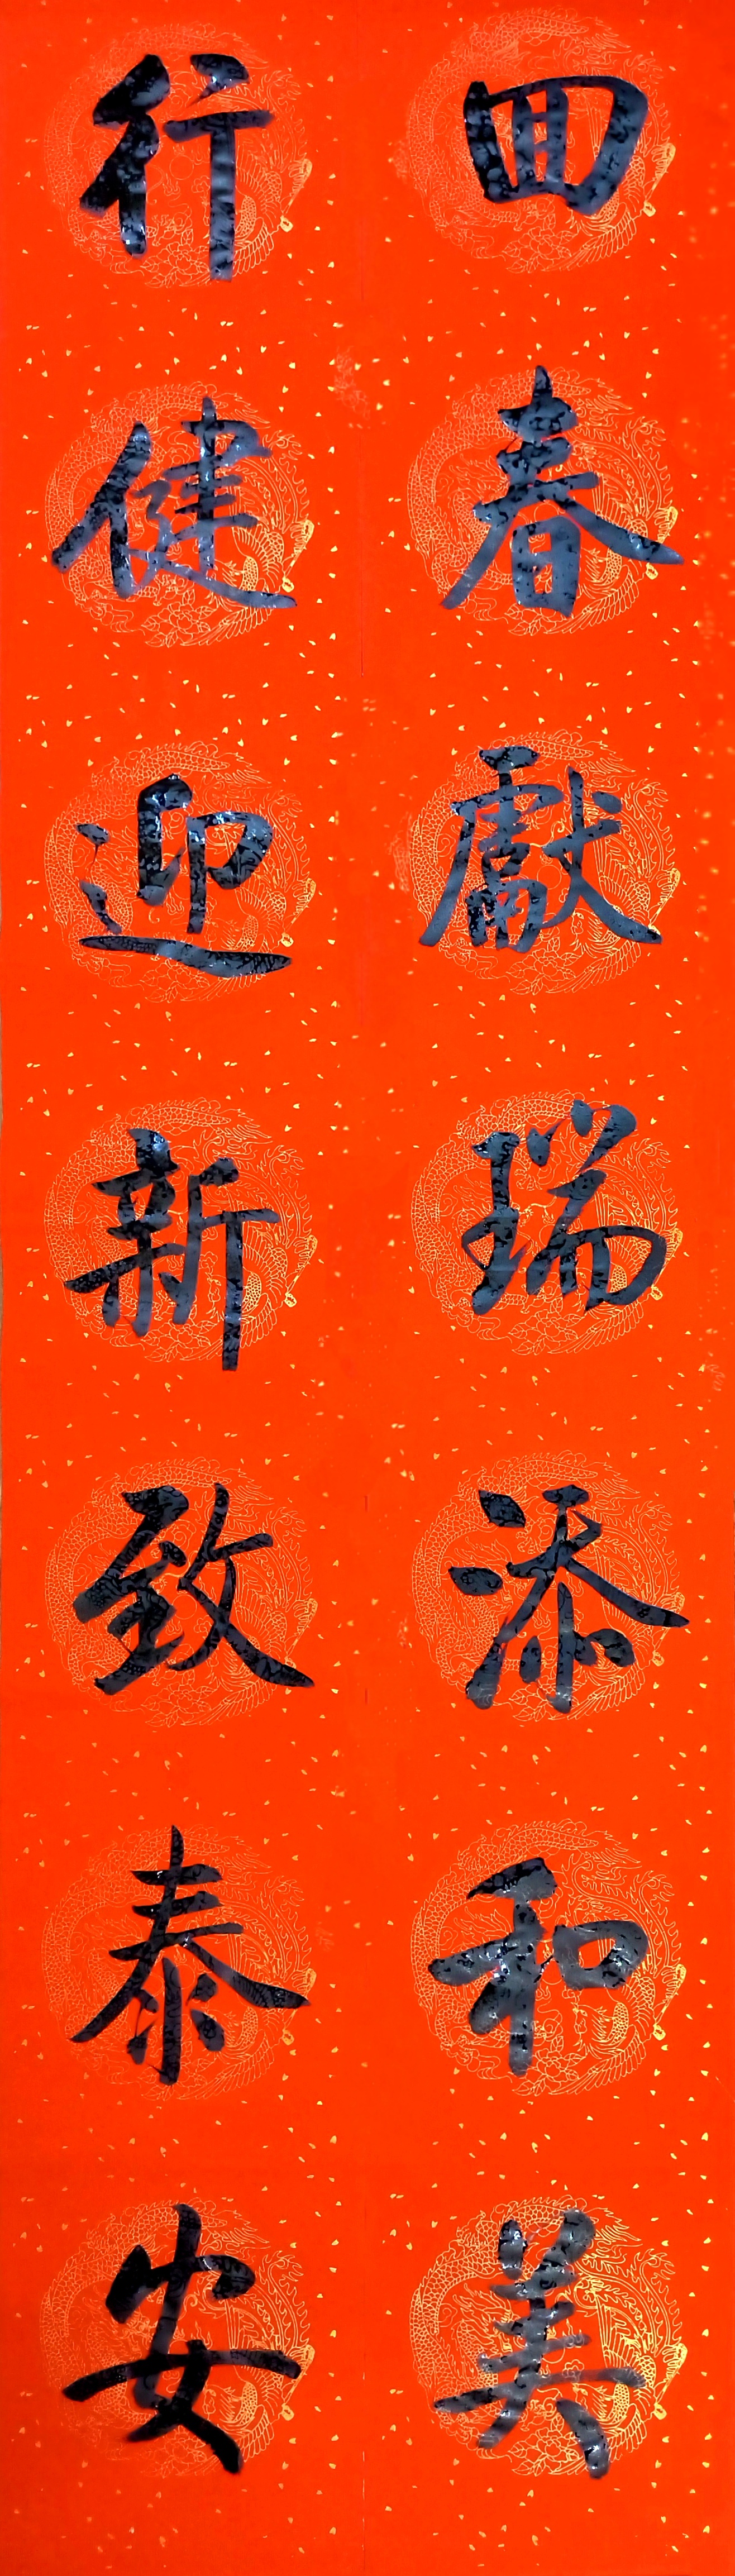 回春獻瑞添和美
行健迎新致泰安